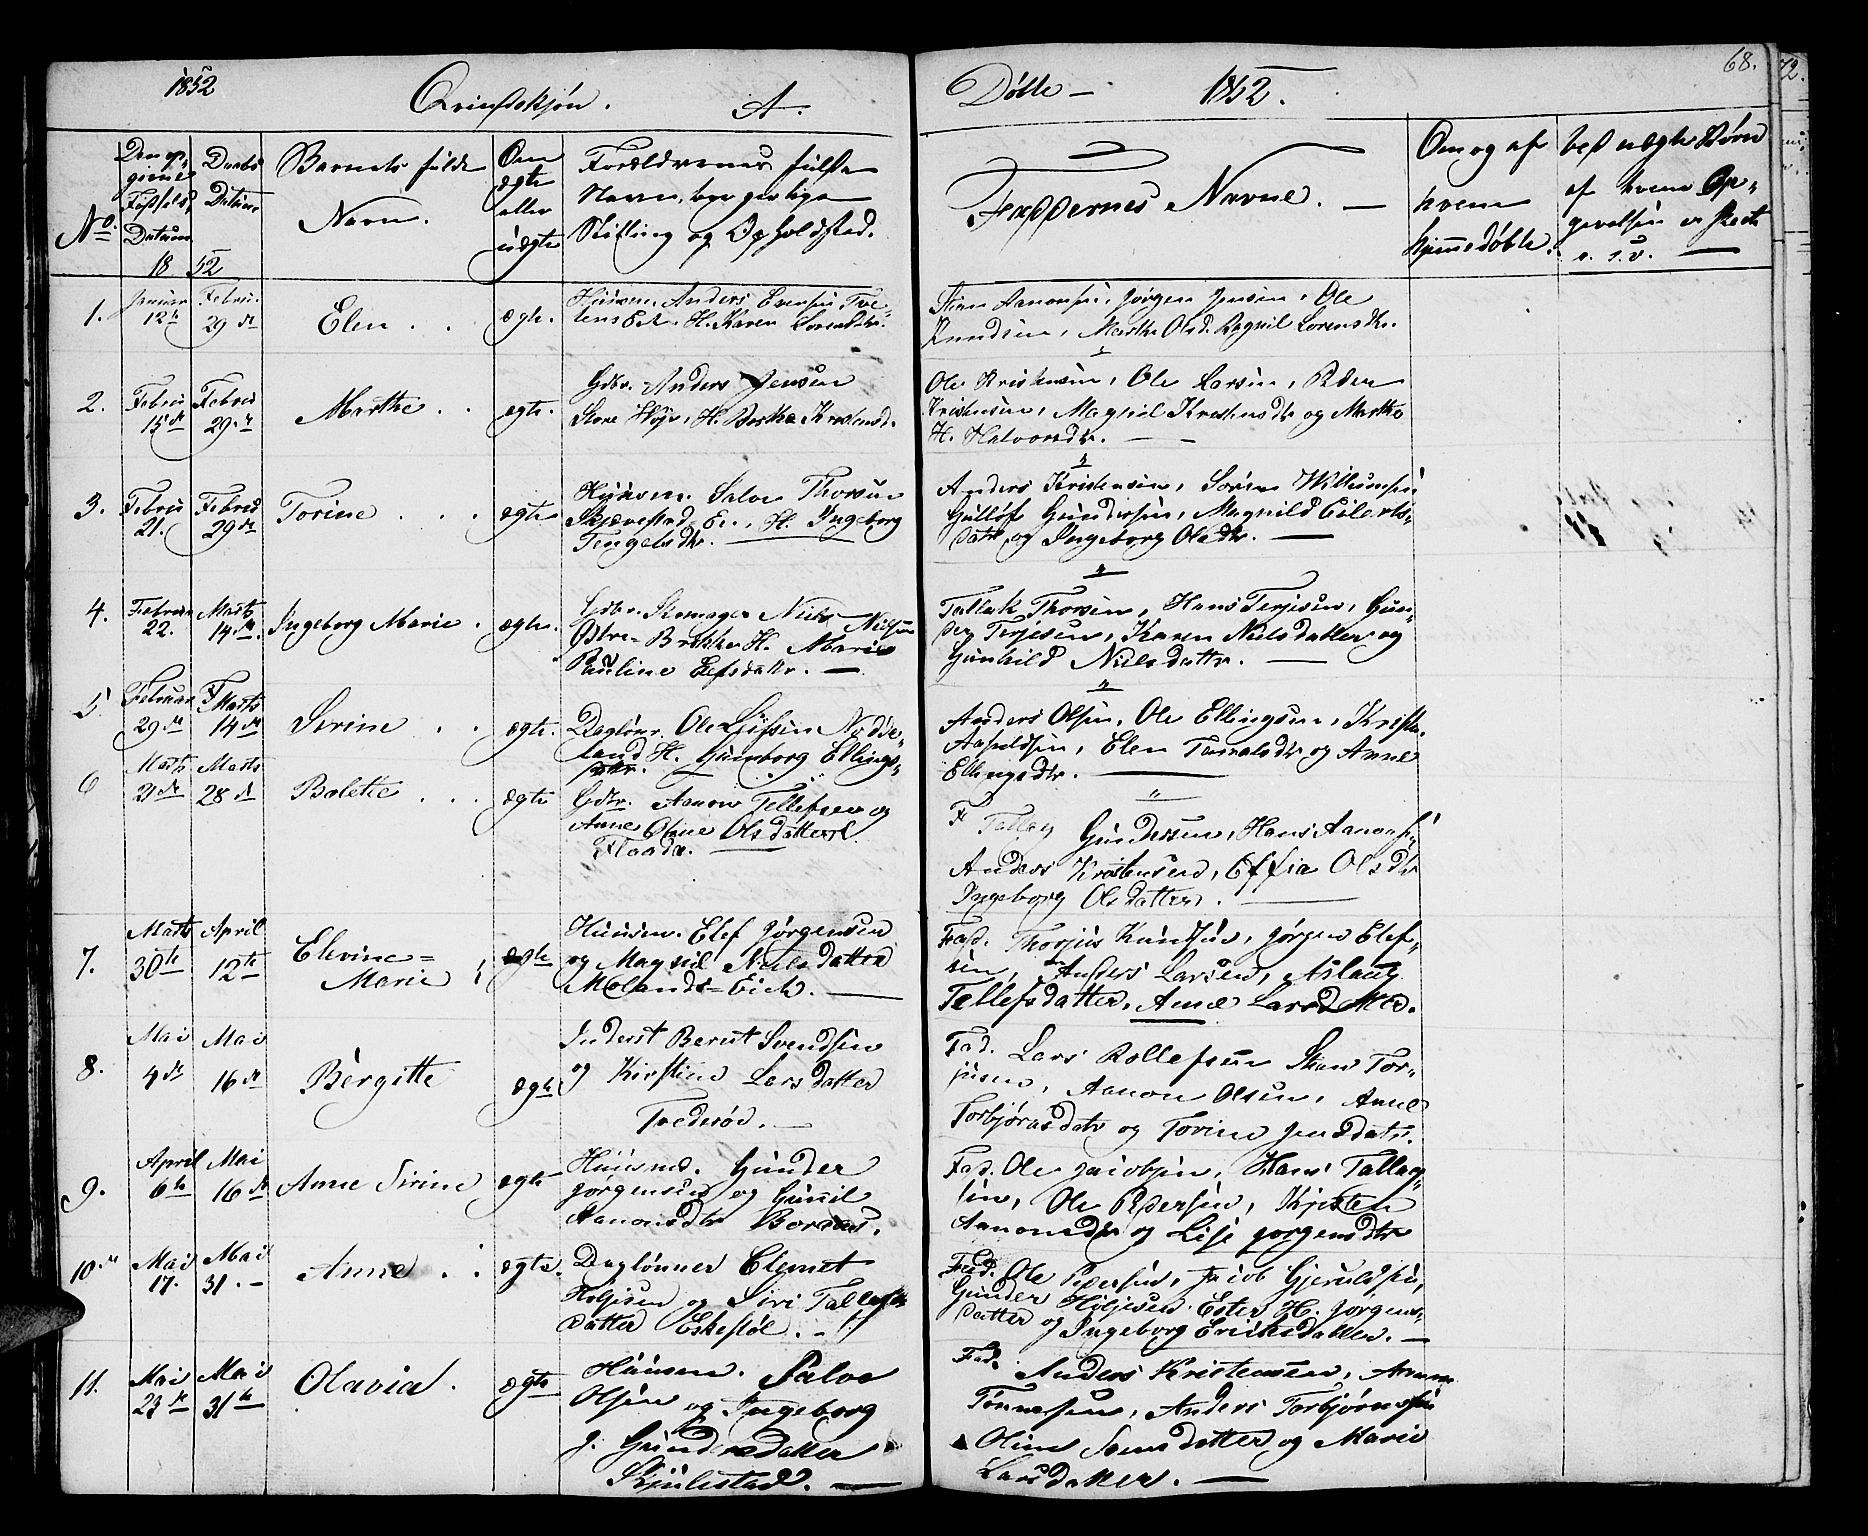 1852 Qvindekjøn. A. Døbte — 1852. 68.
72.
No. Den op-givne Fødsels Datum Daabs Datum Barnets fulde Navn. Om ægte eller uægte Forældrenes fulde Navn, borgerlige Stilling og Opholdsted. Faddernes Navne. — Om og af hvem hjemmedøbte. ved uægte Børn af hvem Op-givelsen er skeet o. s. v. —
18 52
1. Januar 12te Februar 29de Elen ægte. Huusm. Anders Evensen H. Karen Sørensdtr.
Aanonsen, Jørgen Jensen, Ole
Knudsen, Marthe Olsd. Ragnil Lorensdtr.
2. Februar 15de Februar 29de Marthe ægte. Gdbr. Anders Jensen
Store H.
Ole Kristensen, Ole Larsen, Peder
Kristensen, Magnil Kristensdtr og Marthe
H. Halvorsdtr. —
3. Februar 21. Februar 29de Torine ægte Huusm. Salve Thorsen
H. Ingeborg
Tengelsdtr. —
Anders Kristensen, Søren Willumsen
Gulløf Gundersen, Magnild Eilerts-
datr og Ingeborg Olsdtr. —
4. Februar 22. Marts 14de Ingeborg Marie. ægte. Gdbr. Skomager Niels Nielsen
Østre- H. Marie
Pauline Eefsdattr. —
Tallak Thorsen, Hans Terjesen, Gun-
der Terjesen, Karen Nielsdatter og
Gunhild Nielsdattr. —
5 Februar 29de Marts 14de Serine ægte. Daglønr. Ole
H. Gunborg Ellings-
dtr.
Anders Olsen, Ole Ellingsen,
Elen og Anne
Ellingsdtr. —
6 Marts 21de Marts 28de Boletie ægte Gdbr. Aanon Tellefsen og
Anne Oline Olsdatter
Flaade. —
F Tallag Gundersen, Hans Aanons.
Anders Kristensen, Effia Olsdtr
Ingeborg Olsdatter. —
7. Marts 30te April 12te Elevine=
Marie ægte Huusm. Elef Jørgensen
og Magnil Nielsdatter
Molands=Eich. —
Fad. Thorjus Knudsen, Jørgen Elef-
sen, Anders Larsen, Aslaug
Tellefsdatter, Anne Larsdatter.
8. Mai 4de Mai 16de Bergitte ægte Inderst Berent Svendsen
og Kirstine Larsdatter
Trederød. —
Fad. Lars Rollefsen Tor-
jusen, Aanon Olsen, Anne
Torbjørnsdatr og Torine Jensdatr.
9. April 6te Mai 16de Anne Sirine ægte Huusmd. Gunder
Jørgensen og Gunnil
AanonsdtrBoraas.
Fad. Ole Jacobsen, Hans Tallag-
sen, Ole Pedersen, Kjisten
Aanonsdtr og Lise Jørgensdtr
10. Mai 17. Mai 31. — Anne ægte. Dagløner Clemet
Holjesen og Siri Tallefs-
datter Eskestøl. —
Fad. Ole Pedersen, Jacob Gjeruldsen,
Gunder Holjesen, Ester H. Jørgens-
datter og Ingeborg Eriksdatter. —
11. Mai 23de Mai 31te Olavia. ægte Huusm. Salve
Olsen og Ingeborg
J. Gundersdatter
Skjulestad. —
Fad. Anders Kristensen,
Tønnesen, Anders Torbjørnsen
Oline datter og Marie
Larsdatter. —